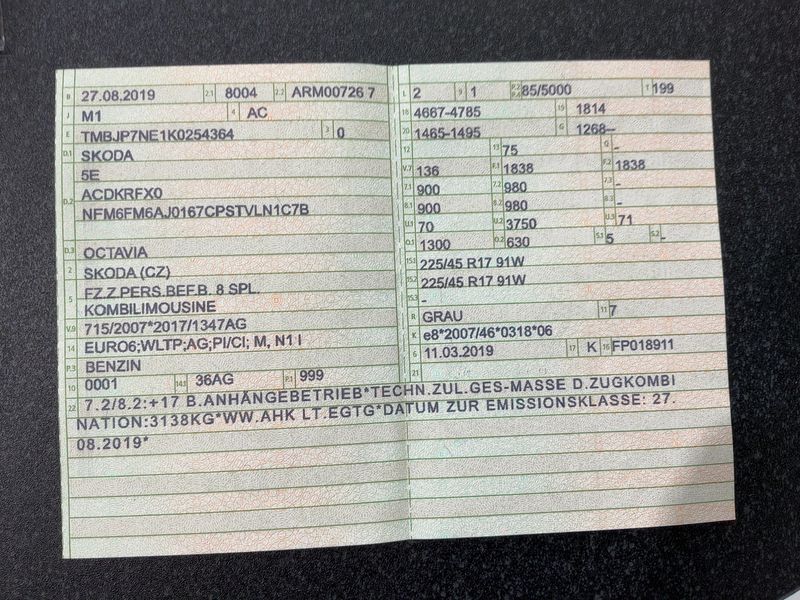 B 27.08.2019 2.1 8004 2.2 ARM00726 7
J M1 4 AC
E TMBJP7NE1K0254364 3 0
D.1 SKODA
5E
D.2 ACDKRFX0
NFM6FM6AJ0167CPSTVLN1C7B
D.3 OCTAVIA
2 SKODA (CZ)
5 FZ.Z.PERS.BEF.B. 8 SPL.
KOMBILIMOUSINE
V.9 715/2007*2017/1347AG
14 EURO6;WLTP;AG;PI/CI; M, N1 I
P.3 BENZIN
10 0001 14.1 36AG P.1 999
L 2 9 1 P.2 P.4 85/5000 T 199
18 4667-4785 19 1814
20 1465-1495 G 1268--
12 13 75 Q -
V.7 136 F.1 1838 F.2 1838
7.1 900 7.2 980 7.3 -
8.1 900 8.2 980 8.3 -
U.1 70 U.2 3750 U.3 71
O.1 1300 O.2 630 S.1 5 S.2 -
15.1 225/45 R17 91W
15.2 225/45 R17 91W
15.3 -
R GRAU 11 7
K e8*2007/46*0318*06
6 11.03.2019 17 K 16 FP018911
21
22 7.2/8.2:+17 B.ANHÄNGEBETRIEB*TECHN.ZUL.GES-MASSE D.ZUGKOMBI
NATION:3138KG*WW.AHK LT.EGTG*DATUM ZUR EMISSIONSKLASSE: 27.
08.2019*